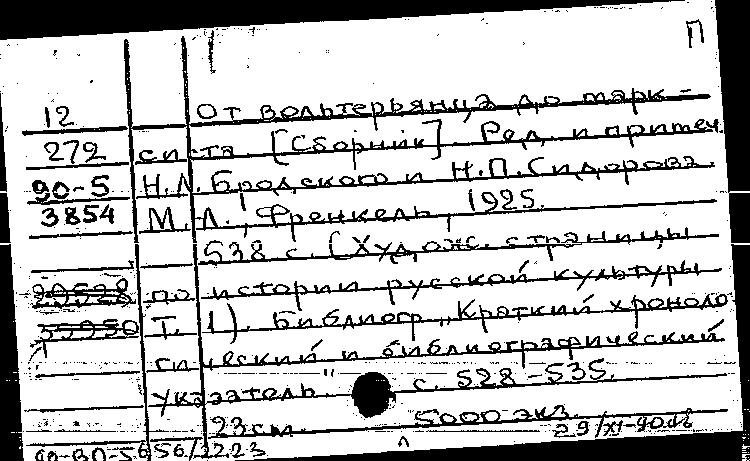 П
12 От вольтерьянца до марк-
279 систа [Сборник]. Ред. и примеч.
90-5 Н.Л.Бродского и Н.П.Сидорова.
3854 М.Л., Френкель, 1925.
538 с. (Худож. страницы
29528 по истории русской культуры
35950 Т. 1). Библиогр. „Краткий хроноло
гический и библиографический
указатель." с. 528-535.
23см. 5000 экз.
29/XI-90
90-ВП-5656/2223